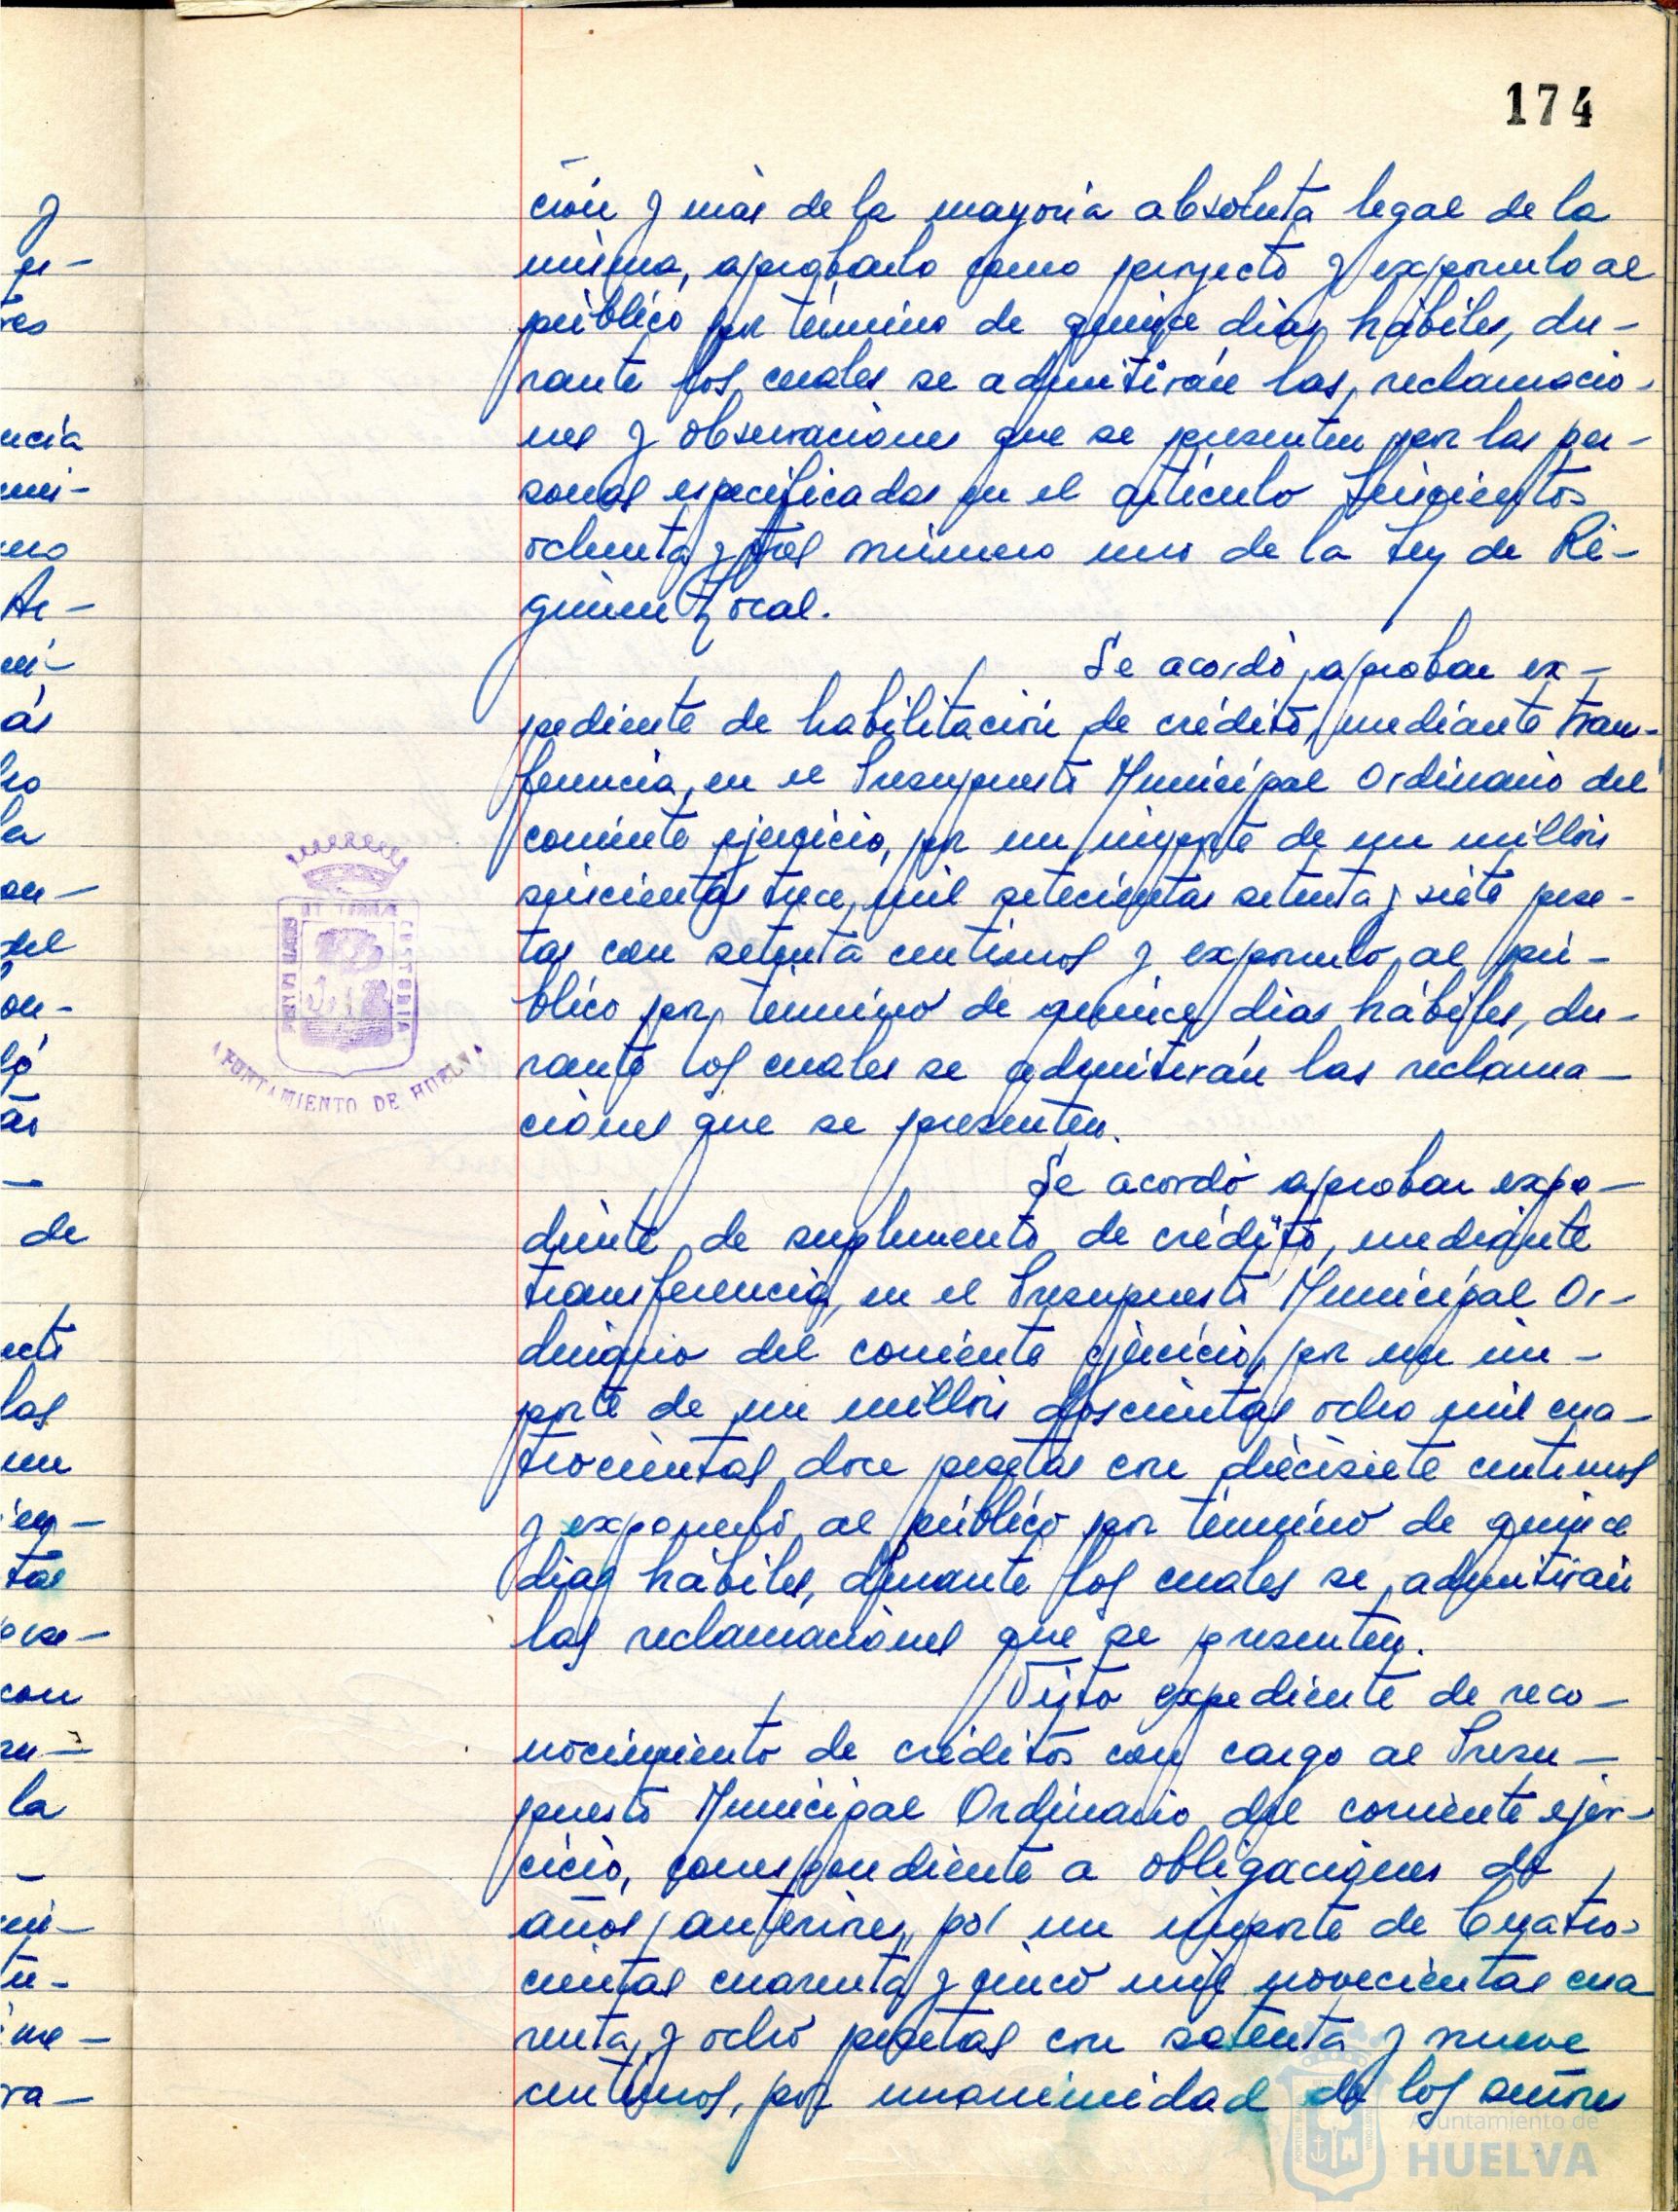 174
ción y más de la mayoría absoluta legal de la
misma, aprobarlo como proyecto y exponerlo al
público por término de quince días hábiles, du-
rante los cuales se admitirán las reclamacio-
nes y observaciones que se presenten por las per-
sonas especificadas en el artículo seiscientos
ochenta y tres número uno de la Ley de Ré-
gimen Local.
Se acordó aprobar ex-
pediente de habilitación de crédito, mediante trans-
ferencia, en el Presupuesto Municipal Ordinario del
corriente ejercicio, por un importe de un millón
seiscientas trece mil setecientas setenta y siete pese-
tas con setenta centimos y exponerlo al pú-
blico por término de quince días hábiles, du-
rante los cuales se admitirán las reclama-
ciones que se presenten.
Se acordó aprobar expe-
diente de suplemento de crédito, mediante
transferencia, en el Presupuesto Municipal Or-
dinario del corriente ejercicio, por un im-
porte de un millón doscientas ocho mil cua-
trocientas doce pesetas con diecisiete centimos
y exponerlo al público por término de quince
días hábiles, durante los cuales se admitirán
las reclamaciones que se presenten.
Visto expediente de reco-
nocimiento de créditos con cargo al Presu-
puesto Municipal Ordinario del corriente ejer-
cicio, correspondiente a obligaciones de
años anteriores, por un importe de Cuatro-
cientas cuarenta y cinco mil novecientas cua
renta y ocho pesetas con setenta y nueve
centimos, por unanimidad de los señores
AYUNTAMIENTO DE HUELVA
Ayuntamiento de
HUELVA